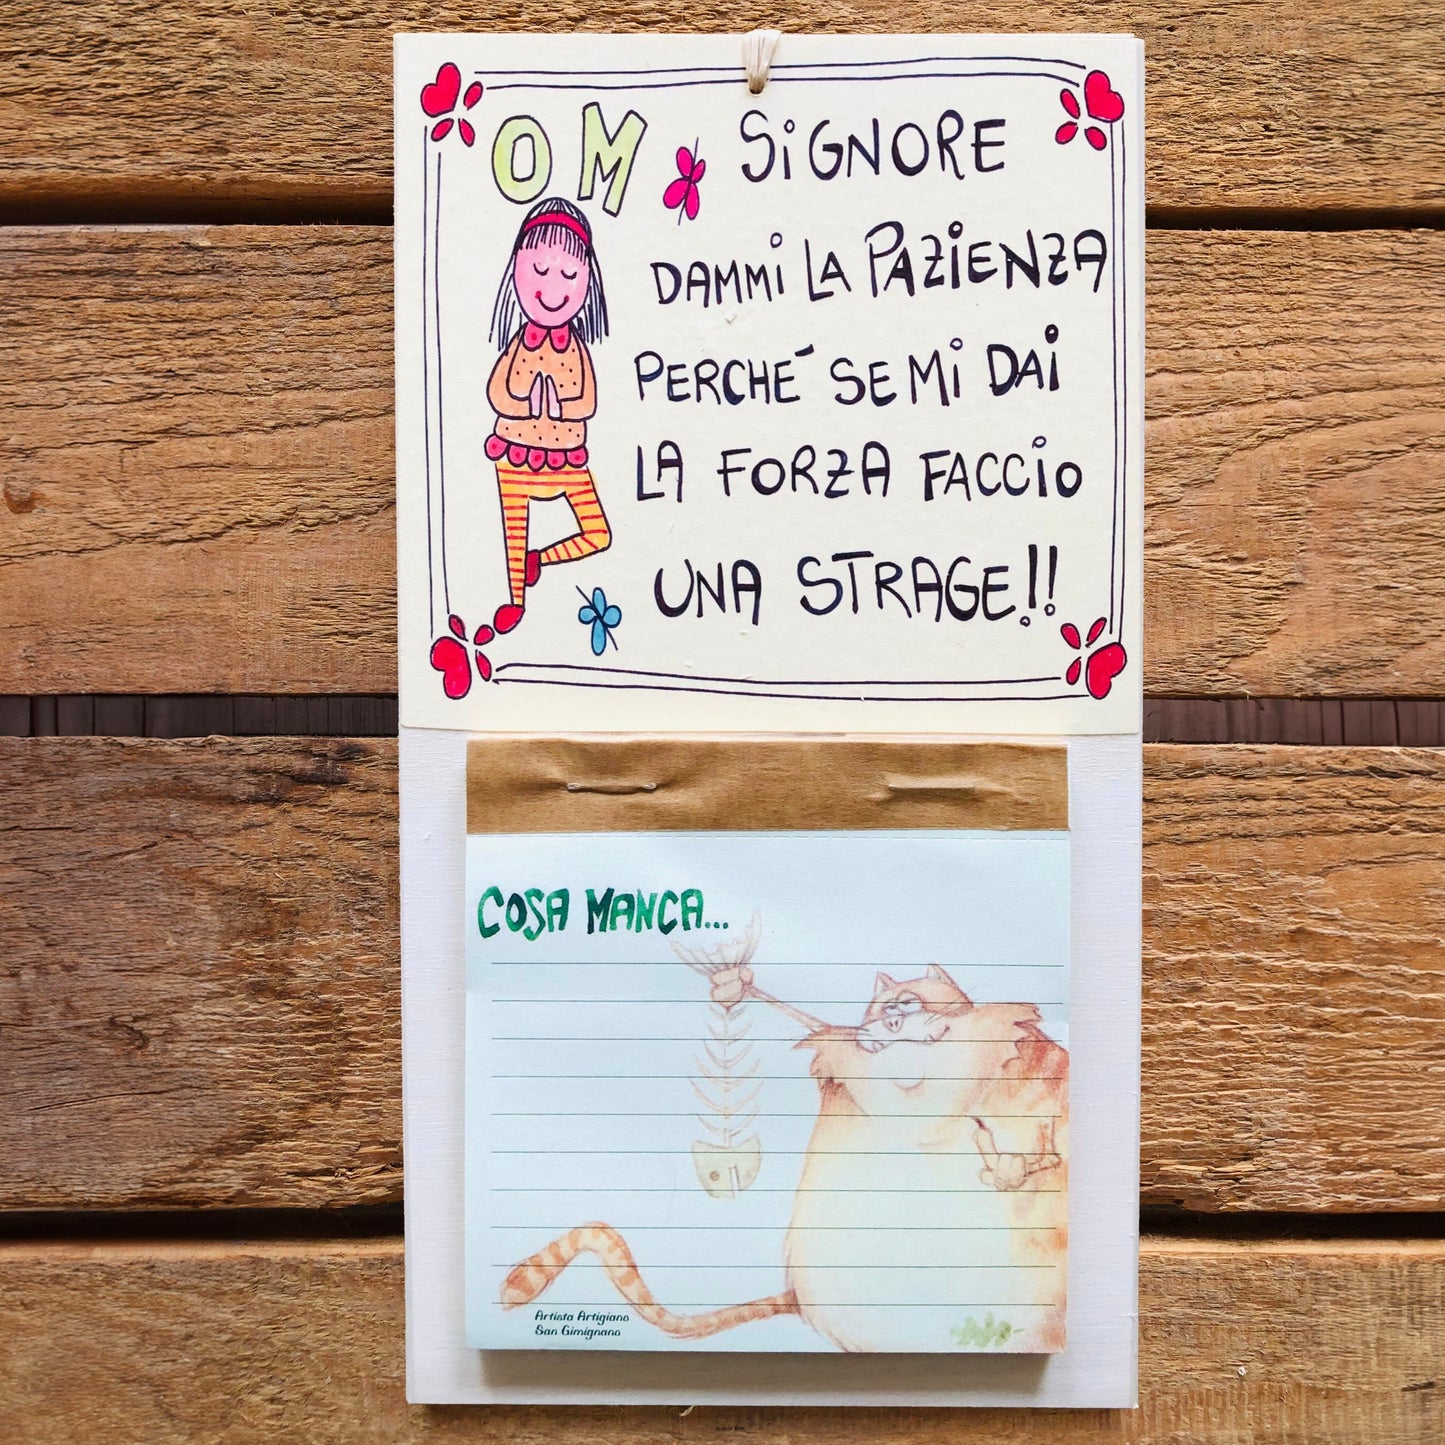 OM
SIGNORE
DAMMI LA PAZIENZA
PERCHÉ SE MI DAI
LA FORZA FACCIO
UNA STRAGE!!
COSA MANCA...
Artista Artigiano
San Gimignano